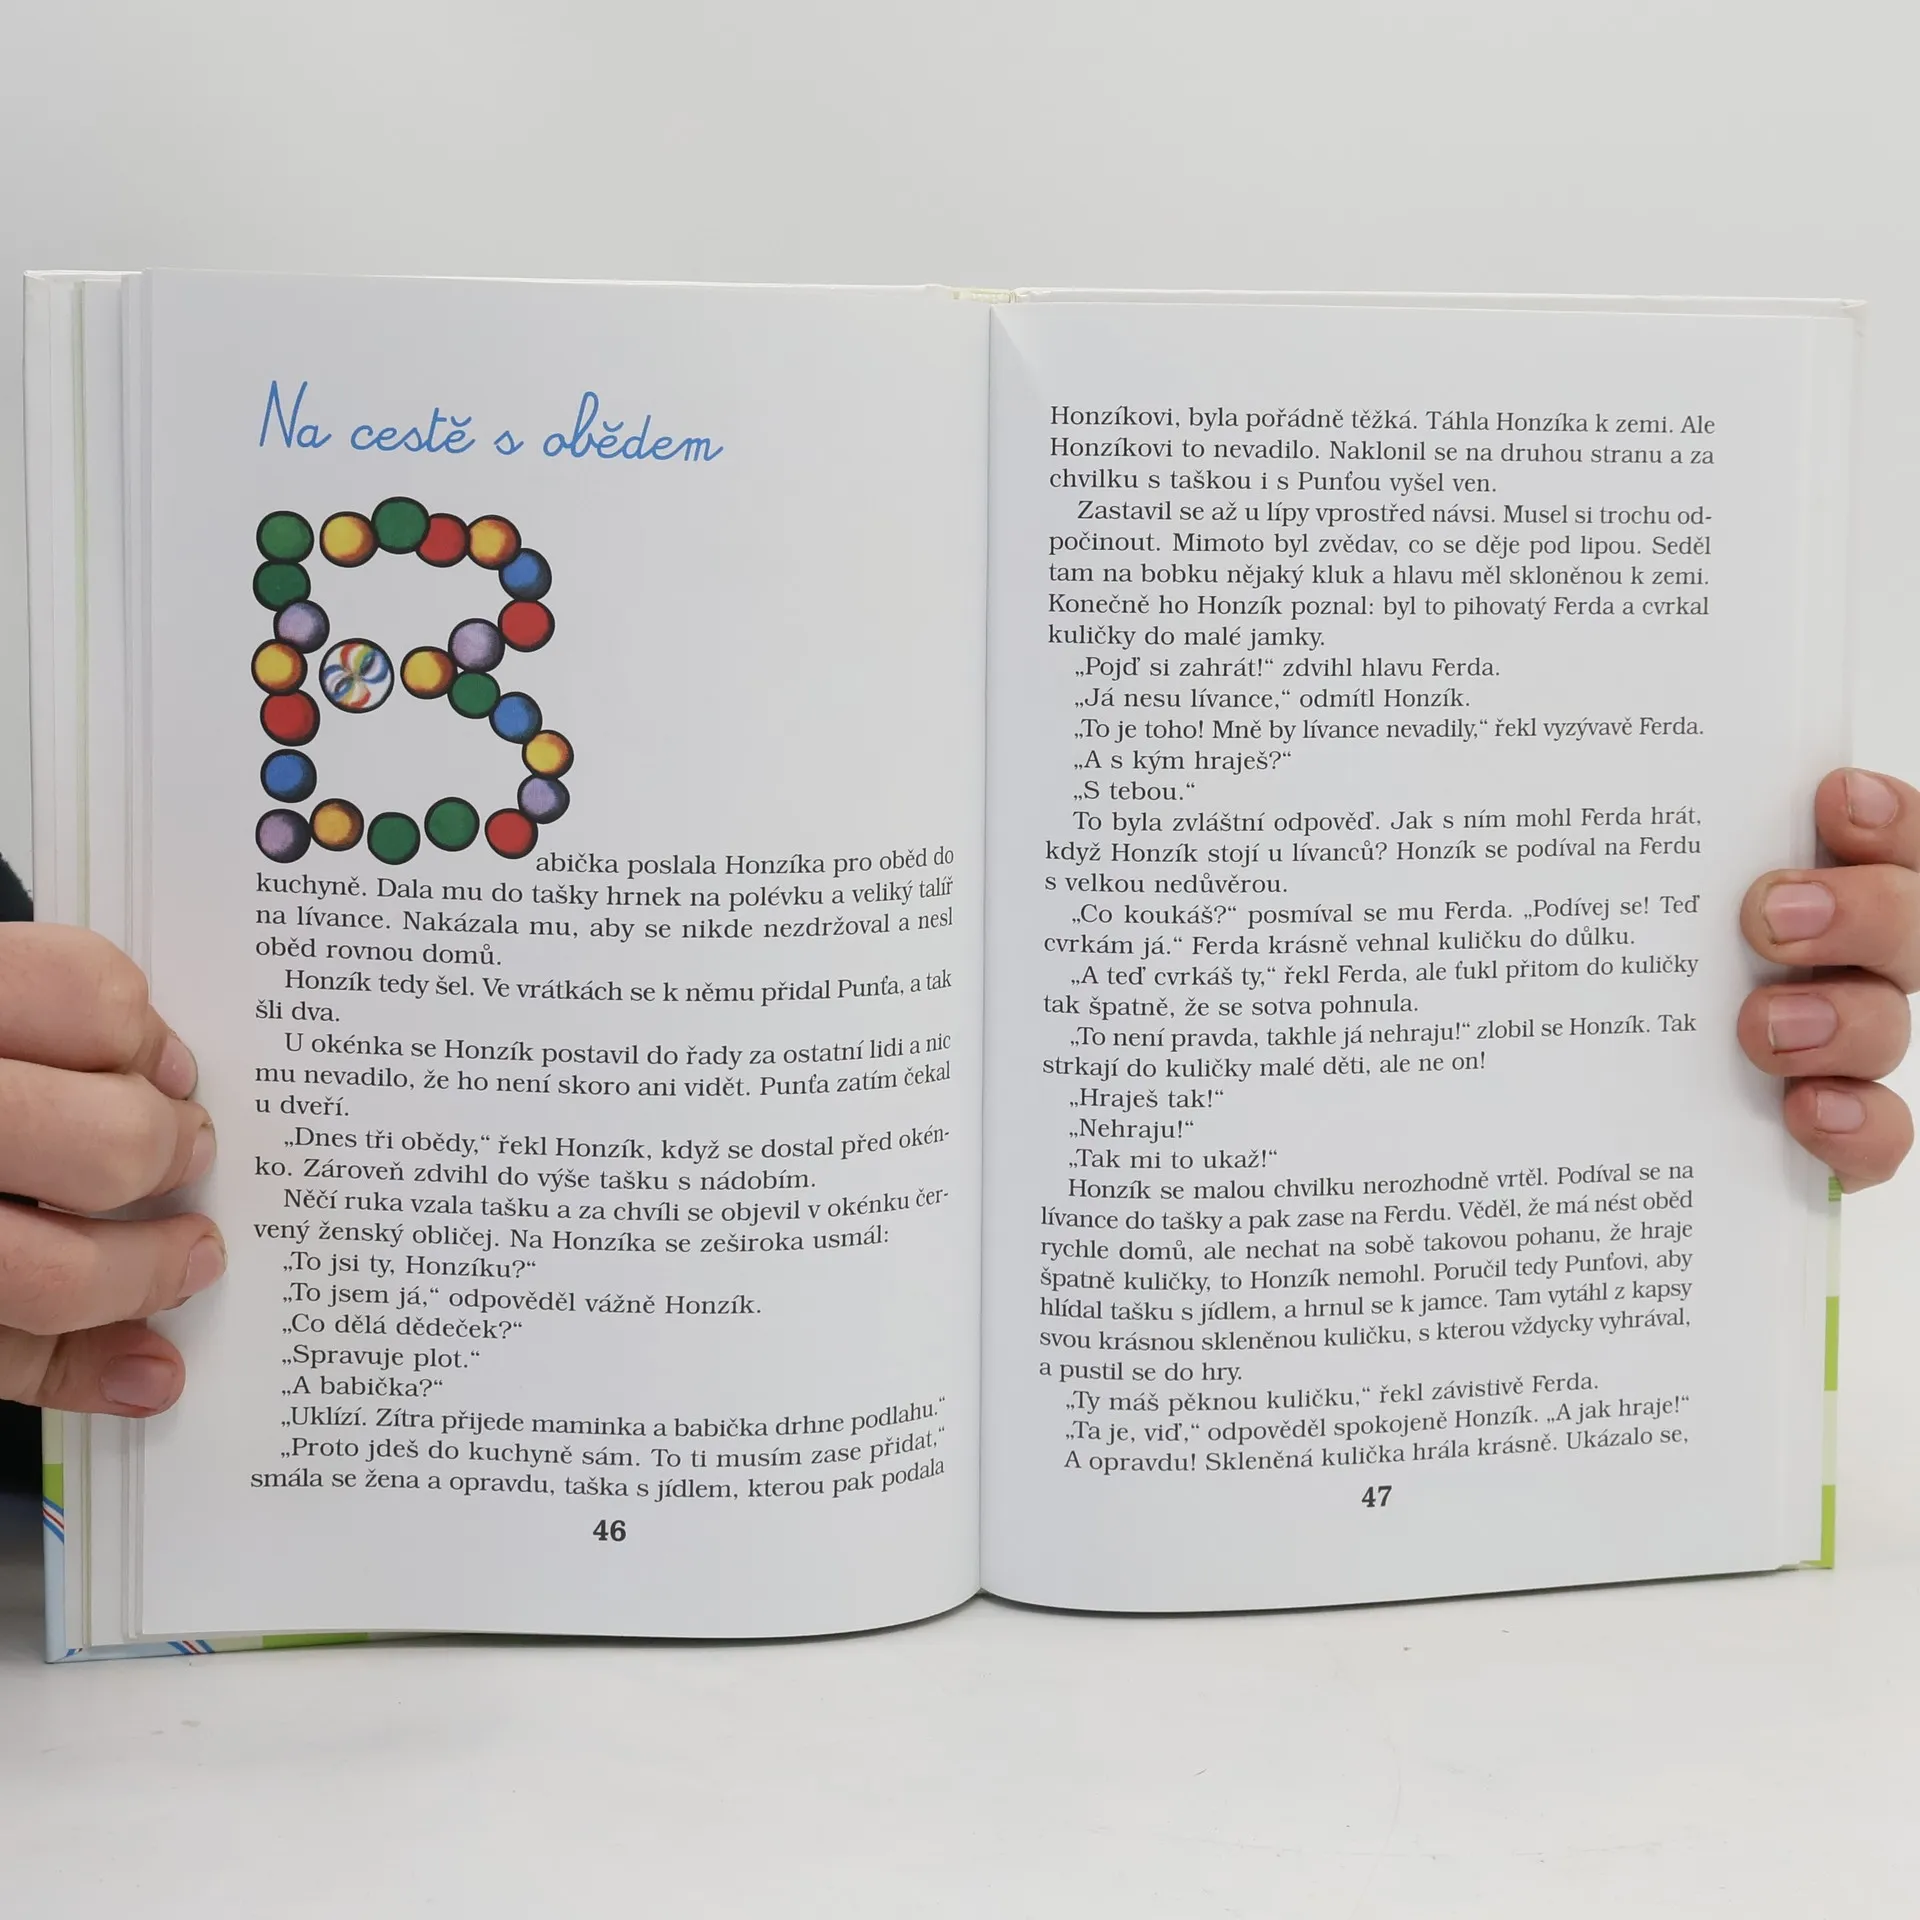 Na cestě s obědem
Babička poslala Honzíka pro oběd do
kuchyně. Dala mu do tašky hrnek na polévku a veliký talíř
na lívance. Nakázala mu, aby se nikde nezdržoval a nesl
oběd rovnou domů.
Honzík tedy šel. Ve vrátkách se k němu přidal Punťa, a tak
šli dva.
U okénka se Honzík postavil do řady za ostatní lidi a nic
mu nevadilo, že ho není skoro ani vidět. Punťa zatím čekal
u dveří.
„Dnes tři obědy,“ řekl Honzík, když se dostal před okén-
ko. Zároveň zdvihl do výše tašku s nádobím.
Něčí ruka vzala tašku a za chvíli se objevil v okénku čer-
vený ženský obličej. Na Honzíka se zeširoka usmál:
„To jsi ty, Honzíku?“
„To jsem já,“ odpověděl vážně Honzík.
„Co dělá dědeček?“
„Spravuje plot.“
„A babička?“
„Uklízí. Zítra přijede maminka a babička drhne podlahu.“
„Proto jdeš do kuchyně sám. To ti musím zase přidat,“
smála se žena a opravdu, taška s jídlem, kterou pak podala
46
Honzíkovi, byla pořádně těžká. Táhla Honzíka k zemi. Ale
Honzíkovi to nevadilo. Naklonil se na druhou stranu a za
chvilku s taškou i s Punťou vyšel ven.
Zastavil se až u lípy vprostřed návsi. Musel si trochu od-
počinout. Mimoto byl zvědav, co se děje pod lipou. Seděl
tam na bobku nějaký kluk a hlavu měl skloněnou k zemi.
Konečně ho Honzík poznal: byl to pihovatý Ferda a cvrkal
kuličky do malé jamky.
„Pojď si zahrát!“ zdvihl hlavu Ferda.
„Já nesu lívance,“ odmítl Honzík.
„To je toho! Mně by lívance nevadily,“ řekl vyzývavě Ferda.
„A s kým hraješ?“
„S tebou.“
To byla zvláštní odpověď. Jak s ním mohl Ferda hrát,
když Honzík stojí u lívanců? Honzík se podíval na Ferdu
s velkou nedůvěrou.
„Co koukáš?“ posmíval se mu Ferda. „Podívej se! Teď
cvrkám já.“ Ferda krásně vehnal kuličku do důlku.
„A teď cvrkáš ty,“ řekl Ferda, ale ťukl přitom do kuličky
tak špatně, že se sotva pohnula.
„To není pravda, takhle já nehraju!“ zlobil se Honzík. Tak
strkají do kuličky malé děti, ale ne on!
„Hraješ tak!“
„Nehraju!“
„Tak mi to ukaž!“
Honzík se malou chvilku nerozhodně vrtěl. Podíval se na
lívance do tašky a pak zase na Ferdu. Věděl, že má nést oběd
rychle domů, ale nechat na sobě takovou pohanu, že hraje
špatně kuličky, to Honzík nemohl. Poručil tedy Punťovi, aby
hlídal tašku s jídlem, a hrnul se k jamce. Tam vytáhl z kapsy
svou krásnou skleněnou kuličku, s kterou vždycky vyhrával,
a pustil se do hry.
„Ty máš pěknou kuličku,“ řekl závistivě Ferda.
„Ta je, viď,“ odpověděl spokojeně Honzík. „A jak hraje!“
A opravdu! Skleněná kulička hrála krásně. Ukázalo se,
47